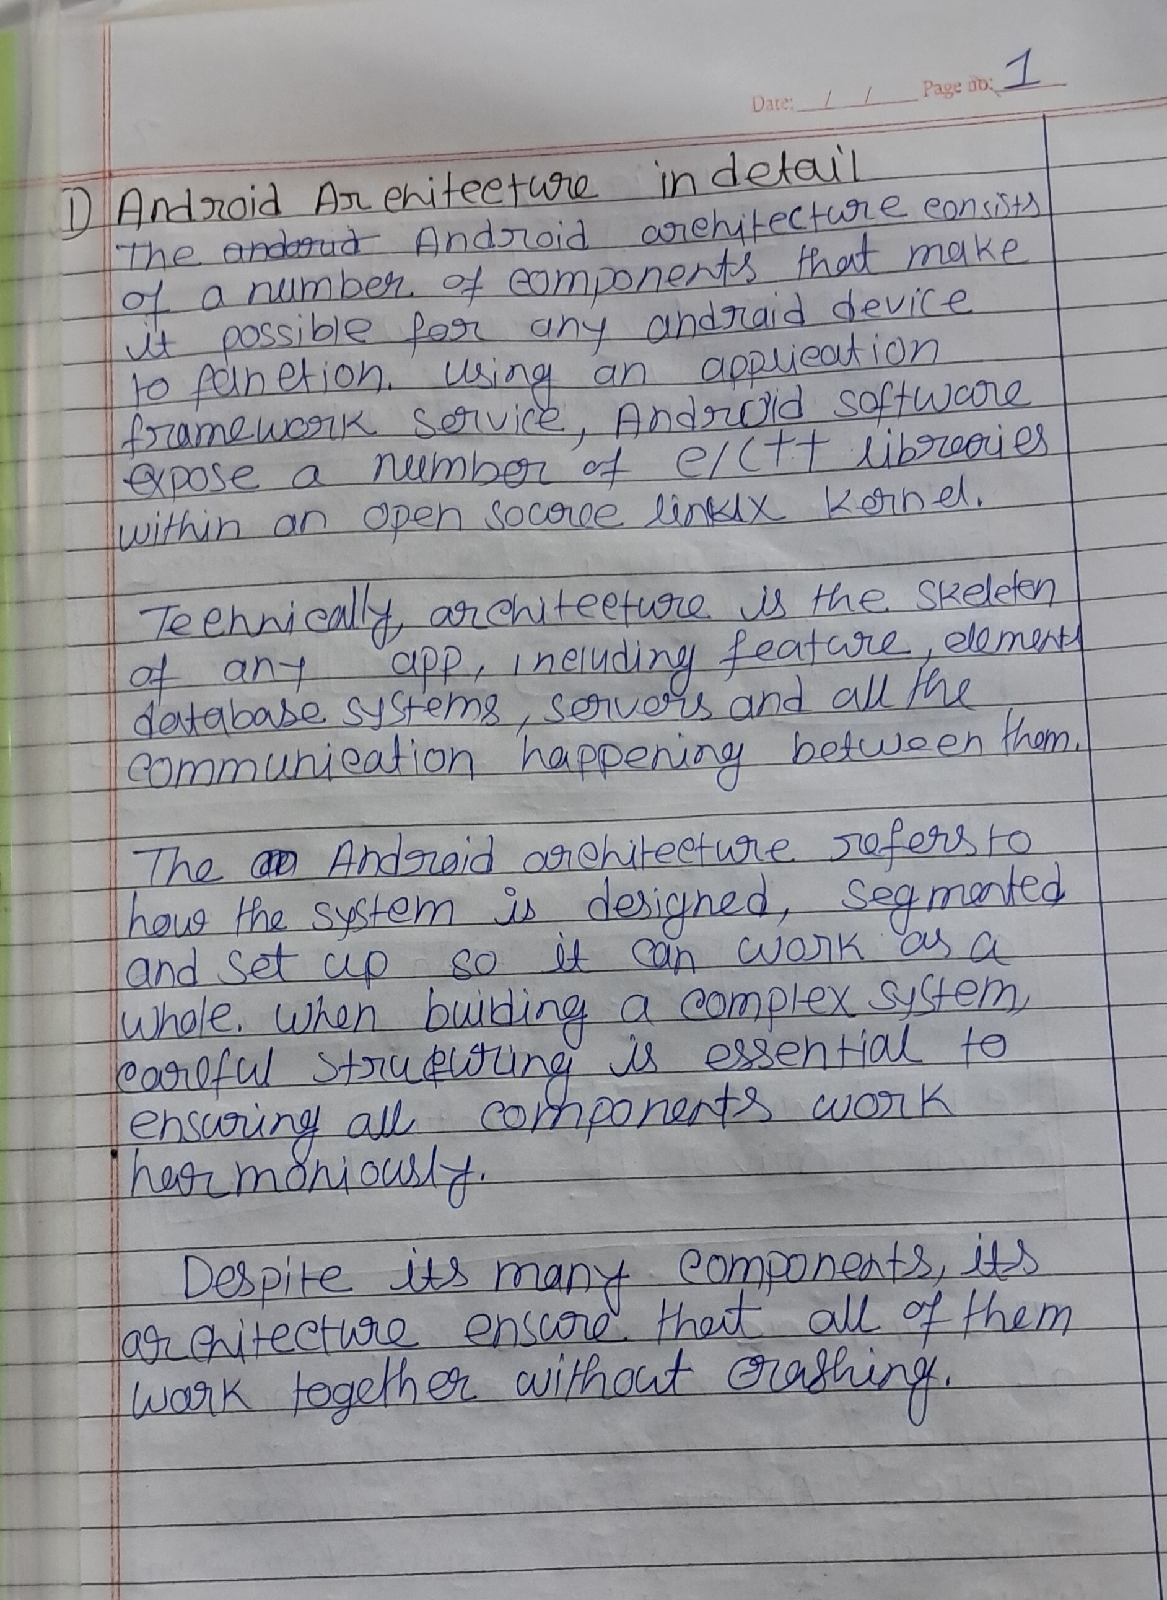 Date: / / Page no: 1
1) Android Architecture in detail
The andorid Android architecture consists
of a number of components that make
it possible for any android device
to function. Using an application
framework service, Android software
expose a number of C/C++ libraries
within an open source linux kernel.
Technically, architecture is the skeleton
of any app, including feature, elements
database systems, servers and all the
communication happening between them.
The an Android architecture refers to
how the system is designed, segmented
and set up so it can work as a
whole. When building a complex system,
careful structuring is essential to
ensuring all components work
harmoniously.
Despite its many components, its
architecture ensure that all of them
work together without crashing.